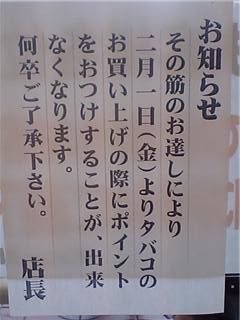 お知らせ
その筋のお達しにより
二月一日(金)よりタバコの
お買い上げの際にポイント
をおつけすることが、出来
なくなります。
何卒ご了承下さい。
店長